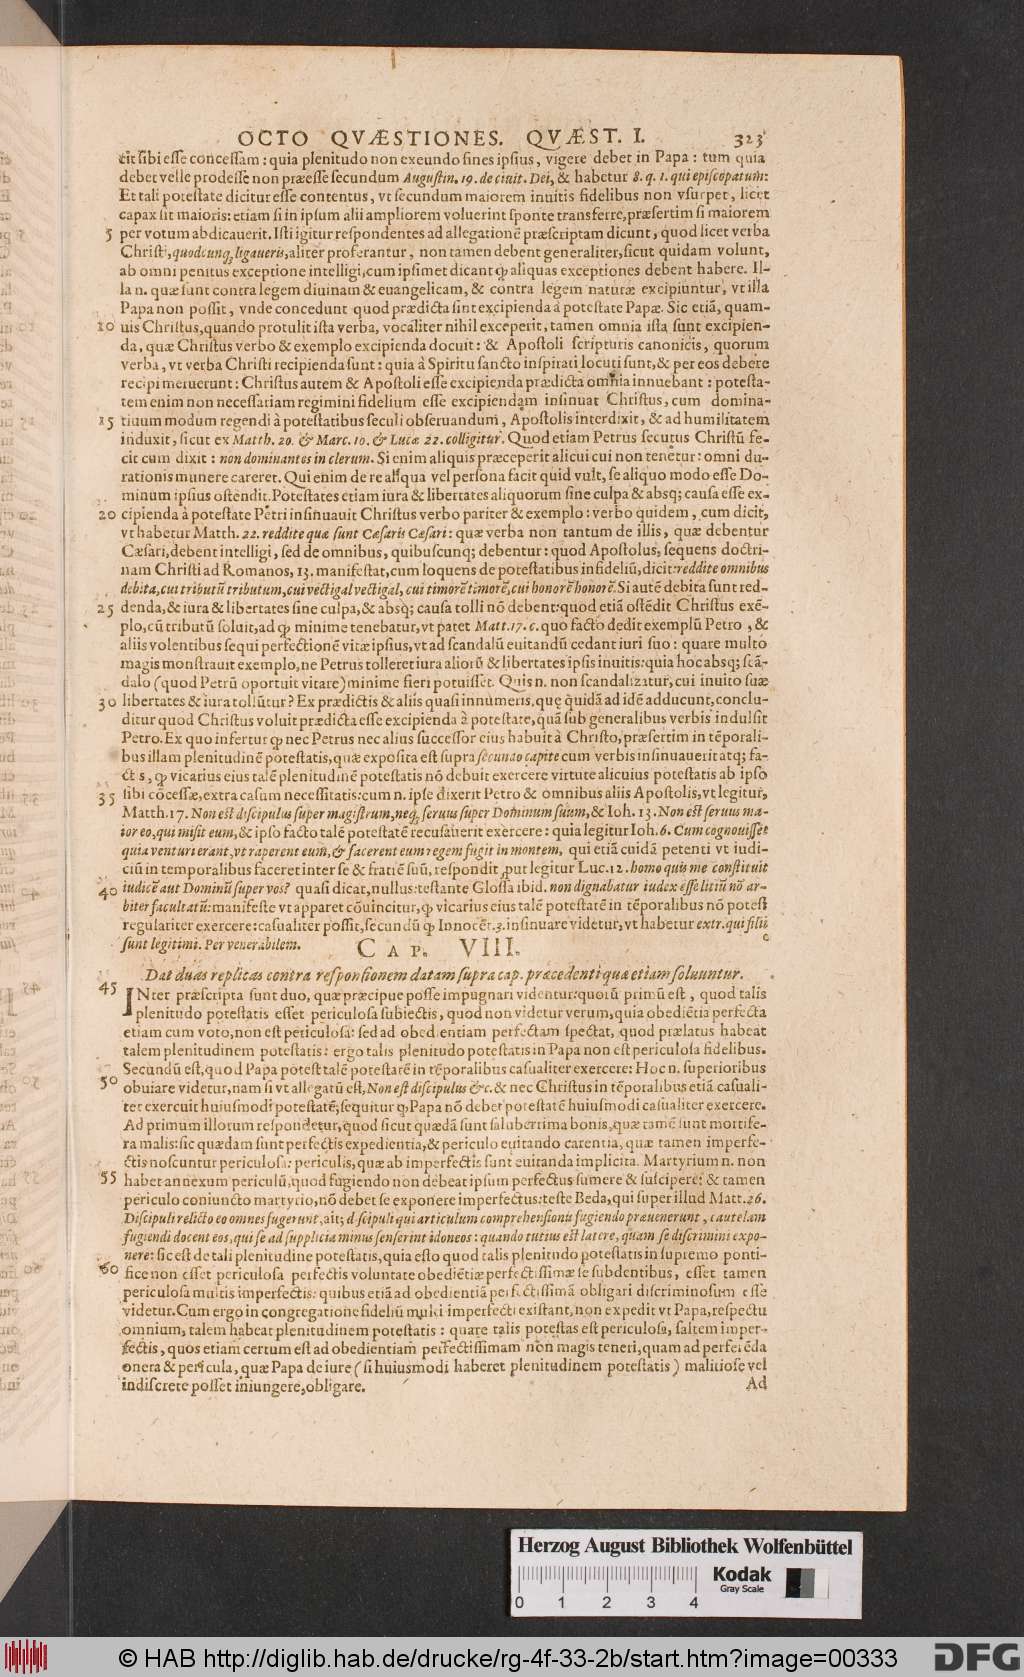 OCTO QVÆSTIONES. QVÆST. I. 323
cit sibi esse concessam: quia plenitudo non exeundo fines ipsius, vigere debet in Papa: tum quia
debet velle prodesse non præesse secundum Augustin. 19. de ciuit. Dei, & habetur 8. q. 1. qui episcopatum:
Et tali potestate dicitur esse contentus, vt secundum maiorem inuitis fidelibus non vsurpet, licet
capax sit maioris: etiam si in ipsum alii ampliorem voluerint sponte transferre, præsertim si maiorem
5 per votum abdicauerit. Isti igitur respondentes ad allegationē præscriptam dicunt, quod licet verba
Christi, quodcunq; ligaueris, aliter proferantur, non tamen debent generaliter, sicut quidam volunt,
ab omni penitus exceptione intelligi, cum ipsimet dicant ꝙ aliquas exceptiones debent habere. Il-
la n. quæ sunt contra legem diuinam & euangelicam, & contra legem naturæ excipiuntur, vt illa
Papa non possit, vnde concedunt quod prædicta sint excipienda à potestate Papæ. Sic etiā, quam-
10 uis Christus, quando protulit ista verba, vocaliter nihil exceperit, tamen omnia ista sunt excipien-
da, quæ Christus verbo & exemplo excipienda docuit: & Apostoli scripturis canonicis, quorum
verba, vt verba Christi recipienda sunt: quia à Spiritu sancto inspirati locuti sunt, & per eos debere
recipi meruerunt: Christus autem & Apostoli esse excipienda prædicta omnia innuebant: potesta-
tem enim non necessariam regimini fidelium esse excipiendam insinuat Christus, cum domina-
15 tiuum modum regendi à potestatibus seculi obseruandum, Apostolis interdixit, & ad humilitatem
induxit, sicut ex Matth. 20. & Marc. 10. & Lucæ 22. colligitur. Quod etiam Petrus secutus Christū fe-
cit cum dixit: non dominantes in clerum. Si enim aliquis præceperit alicui cui non tenetur: omni du-
rationis munere careret. Qui enim de re aliqua vel persona facit quid vult, se aliquo modo esse Do-
minum ipsius ostendit. Potestates etiam iura & libertates aliquorum sine culpa & absq; causa esse ex-
20 cipienda à potestate Petri insinuauit Christus verbo pariter & exemplo: verbo quidem, cum dicit,
vt habetur Matth. 22. reddite quæ sunt Cæsaris Cæsari: quæ verba non tantum de illis, quæ debentur
Cæsari, debent intelligi, sed de omnibus, quibuscunq; debentur: quod Apostolus, sequens doctri-
nam Christi ad Romanos, 13. manifestat, cum loquens de potestatibus infideliū, dicit: reddite omnibus
debita, cui tributū tributum, cui vectigal vectigal, cui timorē timorē, cui honorē honorē. Si autē debita sunt red-
25 denda, & iura & libertates sine culpa, & absq; causa tolli nō debent: quod etiā ostēdit Christus exē-
plo, cū tributū soluit, ad ꝙ minime tenebatur, vt patet Matt. 17. c. quo facto dedit exemplū Petro, &
aliis volentibus sequi perfectionē vitæ ipsius, vt ad scandalū euitandū cedant iuri suo: quare multo
magis monstrauit exemplo, ne Petrus tolleret iura aliorū & libertates ipsis inuitis: quia hoc absq; scā-
dalo (quod Petrū oportuit vitare) minime fieri potuisset. Quis n. non scandalizatur, cui inuito suæ
30 libertates & iura tollūtur? Ex prædictis & aliis quasi innumeris, quę quidā ad idē adducunt, conclu-
ditur quod Christus voluit prædicta esse excipienda à potestate, quā sub generalibus verbis indulsit
Petro. Ex quo infertur ꝙ nec Petrus nec alius successor eius habuit à Christo, præsertim in tēporali-
bus illam plenitudinē potestatis, quæ exposita est supra secundo capite cum verbis insinuauerit atq; fa-
ct s, ꝙ vicarius eius talē plenitudinē potestatis nō debuit exercere virtute alicuius potestatis ab ipso
35 sibi cōcessæ, extra casum necessitatis: cum n. ipse dixerit Petro & omnibus aliis Apostolis, vt legitur,
Matth. 17. Non est discipulus super magistrum, neq; seruus super Dominum suum, & Ioh. 13. Non est seruus ma-
ior eo, qui misit eum, & ipso facto talē potestatē recusauerit exercere: quia legitur Ioh. 6. Cum cognouisset
quia venturi erant, vt raperent eum, & facerent eum regem fugit in montem, qui etiā cuidā petenti vt iudi-
ciū in temporalibus faceret inter se & fratrē suū, respondit, put legitur Luc. 12. homo quis me constituit
40 iudicē aut Dominū super vos? quasi dicat, nullus: testante Glossa ibid. non dignabatur iudex esse litiū nō ar-
biter facultatū: manifeste vt apparet cōuincitur, ꝙ vicarius eius talē potestatē in tēporalibus nō potest
regulariter exercere: casualiter possit, secundū ꝙ Innocēt. 3. insinuare videtur, vt habetur extr. qui filii
sunt legitimi. Per venerabilem.
CAP. VIII.
Dat duas replicas contra responsionem datam supra cap. præcedenti quæ etiam soluuntur.
45 INter præscripta sunt duo, quæ præcipue posse impugnari videntur: quorū primū est, quod talis
plenitudo potestatis esset periculosa subiectis, quod non videtur verum, quia obediētia perfecta
etiam cum voto, non est periculosa: sed ad obedientiam perfectam spectat, quod prælatus habeat
talem plenitudinem potestatis: ergo talis plenitudo potestatis in Papa non est periculosa fidelibus.
Secundū est, quod Papa potest talē potestatē in tēporalibus casualiter exercere: Hoc n. superioribus
50 obuiare videtur, nam si vt allegatū est, Non est discipulus &c. & nec Christus in tēporalibus etiā casuali-
ter exercuit huiusmodi potestatē, sequitur ꝙ Papa nō debet potestatē huiusmodi casualiter exercere.
Ad primum illorum respondetur, quod sicut quædā sunt saluberrima bonis, quæ tamē sunt mortife-
ra malis: sic quædam sunt perfectis expedientia, & periculo euitando carentia, quæ tamen imperfe-
ctis noscuntur periculosa: periculis, quæ ab imperfectis sunt euitanda implicita. Martyrium n. non
55 habet annexum periculū, quod fugiendo non debeat ipsum perfectus sumere & suscipere: & tamen
periculo coniuncto martyrio, nō debet se exponere imperfectus: teste Beda, qui super illud Matt. 26.
Discipuli relicto eo omnes fugerunt, ait; discipuli qui articulum comprehensionis fugiendo præuenerunt, cautelam
fugiendi docent eos, qui se ad supplicia minus senserint idoneos: quando tutius est latere, quam se discrimini expo-
nere: sic est de tali plenitudine potestatis, quia esto quod talis plenitudo potestatis in supremo ponti-
60 fice non esset periculosa perfectis voluntate obediētiæ perfectissimæ se subdentibus, esset tamen
periculosa multis imperfectis: quibus etiā ad obedientiā perfectissimā obligari discriminosum esse
videtur. Cum ergo in congregatione fideliū multi imperfecti existant, non expedit vt Papa, respectu
omnium, talem habeat plenitudinem potestatis: quare talis potestas est periculosa, saltem imper-
fectis, quos etiam certum est ad obedientiam perfectissimam non magis teneri, quam ad perferēda
onera & pericula, quæ Papa de iure (si huiusmodi haberet plenitudinem potestatis) malitiose vel
indiscrete posset iniungere, obligare. Ad
Herzog August Bibliothek Wolfenbüttel
Kodak
Gray Scale
0 1 2 3 4
© HAB http://diglib.hab.de/drucke/rg-4f-33-2b/start.htm?image=00333
DFG